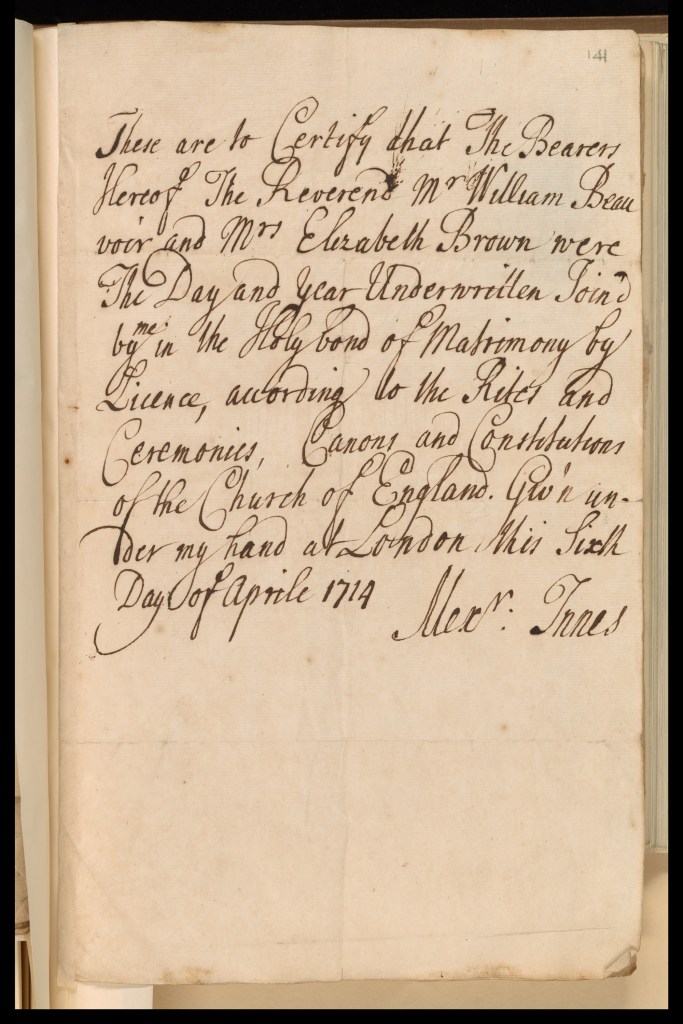 141
These are to Certify that The Bearers
Hereof The Reverend Mr William Beau
voir and Mrs Elizabeth Brown were
The Day and year Underwritten Join'd
by me in the Holy bond of Matrimony by
Licence, according to the Rites and
Ceremonies, Canons and Constitutions
of the Church of England. Giv'n un-
der my hand at London this Sixth
Day of Aprile 1714
Alexr: Innes